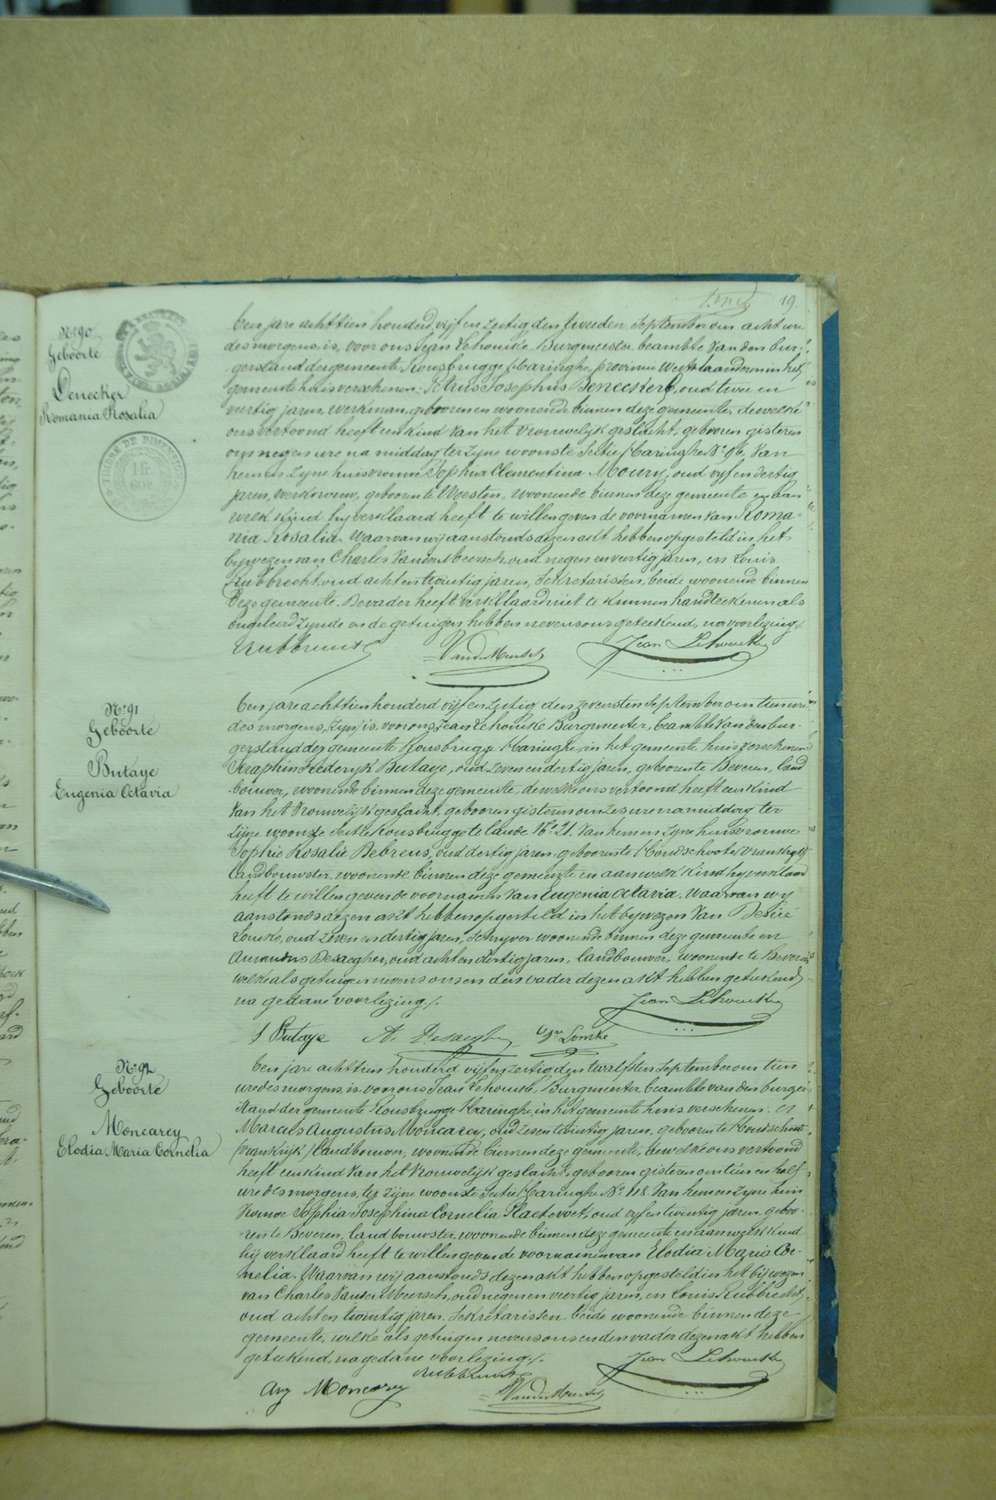 19
N° 90
Geboorte
Denecker
Romania Rosalia
Een jare achttien honderd vijf en zestig den tweeden September om acht ure
des morgens, is, voor ons Jean Lehoucke Burgmeester beambte van den bur-
gerstand der gemeente Rousbrugge Haringhe, provincie Westvlaanderen in het
gemeente huis verschenen Petrus Josephus oud twee en
vertig jaren, werkman, geboren en woonende binnen deze gemeente, dewelke
ons vertoond heeft een kind van het vrouwelijk geslacht, gebooren gisteren
om negen ure na middag ter zyne woonste Sectie Haringhe N° 96, van
hem en zyne huisvrouwe Sophia Clementina Moury, oud vyf en dertig
jaren, werkvrouw, geboren te Westen, woonende binnen deze gemeente en aan
welk kind hy verklaard heeft te willen geven de voornamen van Roma-
nia Rosalia. Waarvan wij aanstonds dezen akt hebben opgesteld in het
bywezen van Charles Vandermeersch oud negen en vertig jaren, en Louis
Rubbrecht, oud acht en twintig jaren, Sekretarissen, beide woonende binnen
deze gemeente. De vader heeft verklaard niet te kunnen handteekenen als
ongeleerd zynde en de getuigen hebben nevens ons geteekend, na voorlezing
Rubbrecht VanderMeersch Jean Lehoucke
N° 91
Geboorte
Butaye
Eugenia Octavia
Een jare achttien honderd vijf en zestig den zevensten September om tien ure
des morgens, zyn, is, voor ons Jean Lehoucke Burgmeester, beambte van den bur-
gerstand der gemeente Rousbrugge Haringhe, in het gemeente huis verschenen
Seraphin Frederyk Butaye, oud zeven en dertig jaren, geboren te Beveren, land
bouwer, woonende binnen deze gemeente, dewelke ons vertoond heeft een kind
van het vrouwelijk geslacht, gebooren gisteren om zes ure na middag ter
zyne woonste Sectie Rousbrugge te lande N° 21, van hem en zyne huisvrouwe
Sophie Rosalie Debreus, oud dertig jaren, geboren te Hondschoote (Vrankryk)
landbouwster, woonende binnen deze gemeente en aan welk kind hy verklaard
heeft te willen geven de voornamen van Eugenia Octavia. Waarvan wy
aanstonds dezen akt hebben opgesteld in het bywezen van Desiré
Loucke, oud zeven en dertig jaren, Schryver woonende binnen deze gemeente en
Amandus Desaegher, oud acht en dertig jaren, landbouwer, woonende te Beveren
welke als getuigen nevens ons en den vader dezen akt hebben geteekend
na gedane voorlezing
Jean Lehoucke
S Butaye A. Desaegher
N° 92
Geboorte
Moncarey
Elodia Maria Cornelia
Een jare achttien honderd vijf en zestig den twalfsten September om tien
ure des morgens, is, voor ons Jean Lehoucke, Burgmeester beambte van den burger
stand der gemeente Rousbrugge Haringhe, in het gemeente huis verschenen
Marcels Augustus Moncarey, oud zeven twintig jaren, geboren te Hondschoote
(Vrankrijk) landbouwer, woonende binnen deze gemeente, dewelke ons vertoond
heeft een kind van het vrouwelijk geslacht, gebooren gisteren om tien en half
ure des morgens, ter zyne woonste Sectie Haringhe N° 118 van hem en zyne huis
vrouwe Sophia Josephina Cornelia Plaetevoet, oud vyf en twintig jaren, gebo-
ren te Beveren, landbouwster, woonende binnen deze gemeente en aan welk kind
hij verklaard heeft te willen geven de voornamen van Elodia Maria Cor-
nelia. Waarvan wij aanstonds dezen akt hebben opgesteld in het bij wezen
van Charles Vander Meersch, oud negen en vertig jaren, en Louis Rubbrecht,
oud acht en twintig jaren, Sekretarissen, beide woonende binnen deze
gemeente, welke als getuigen nevens ons en den vader dezen akt hebben
geteekend, na gedane voorlezing
Rubbrecht Jean Lehoucke
Aug Moncarey VanderMeersch